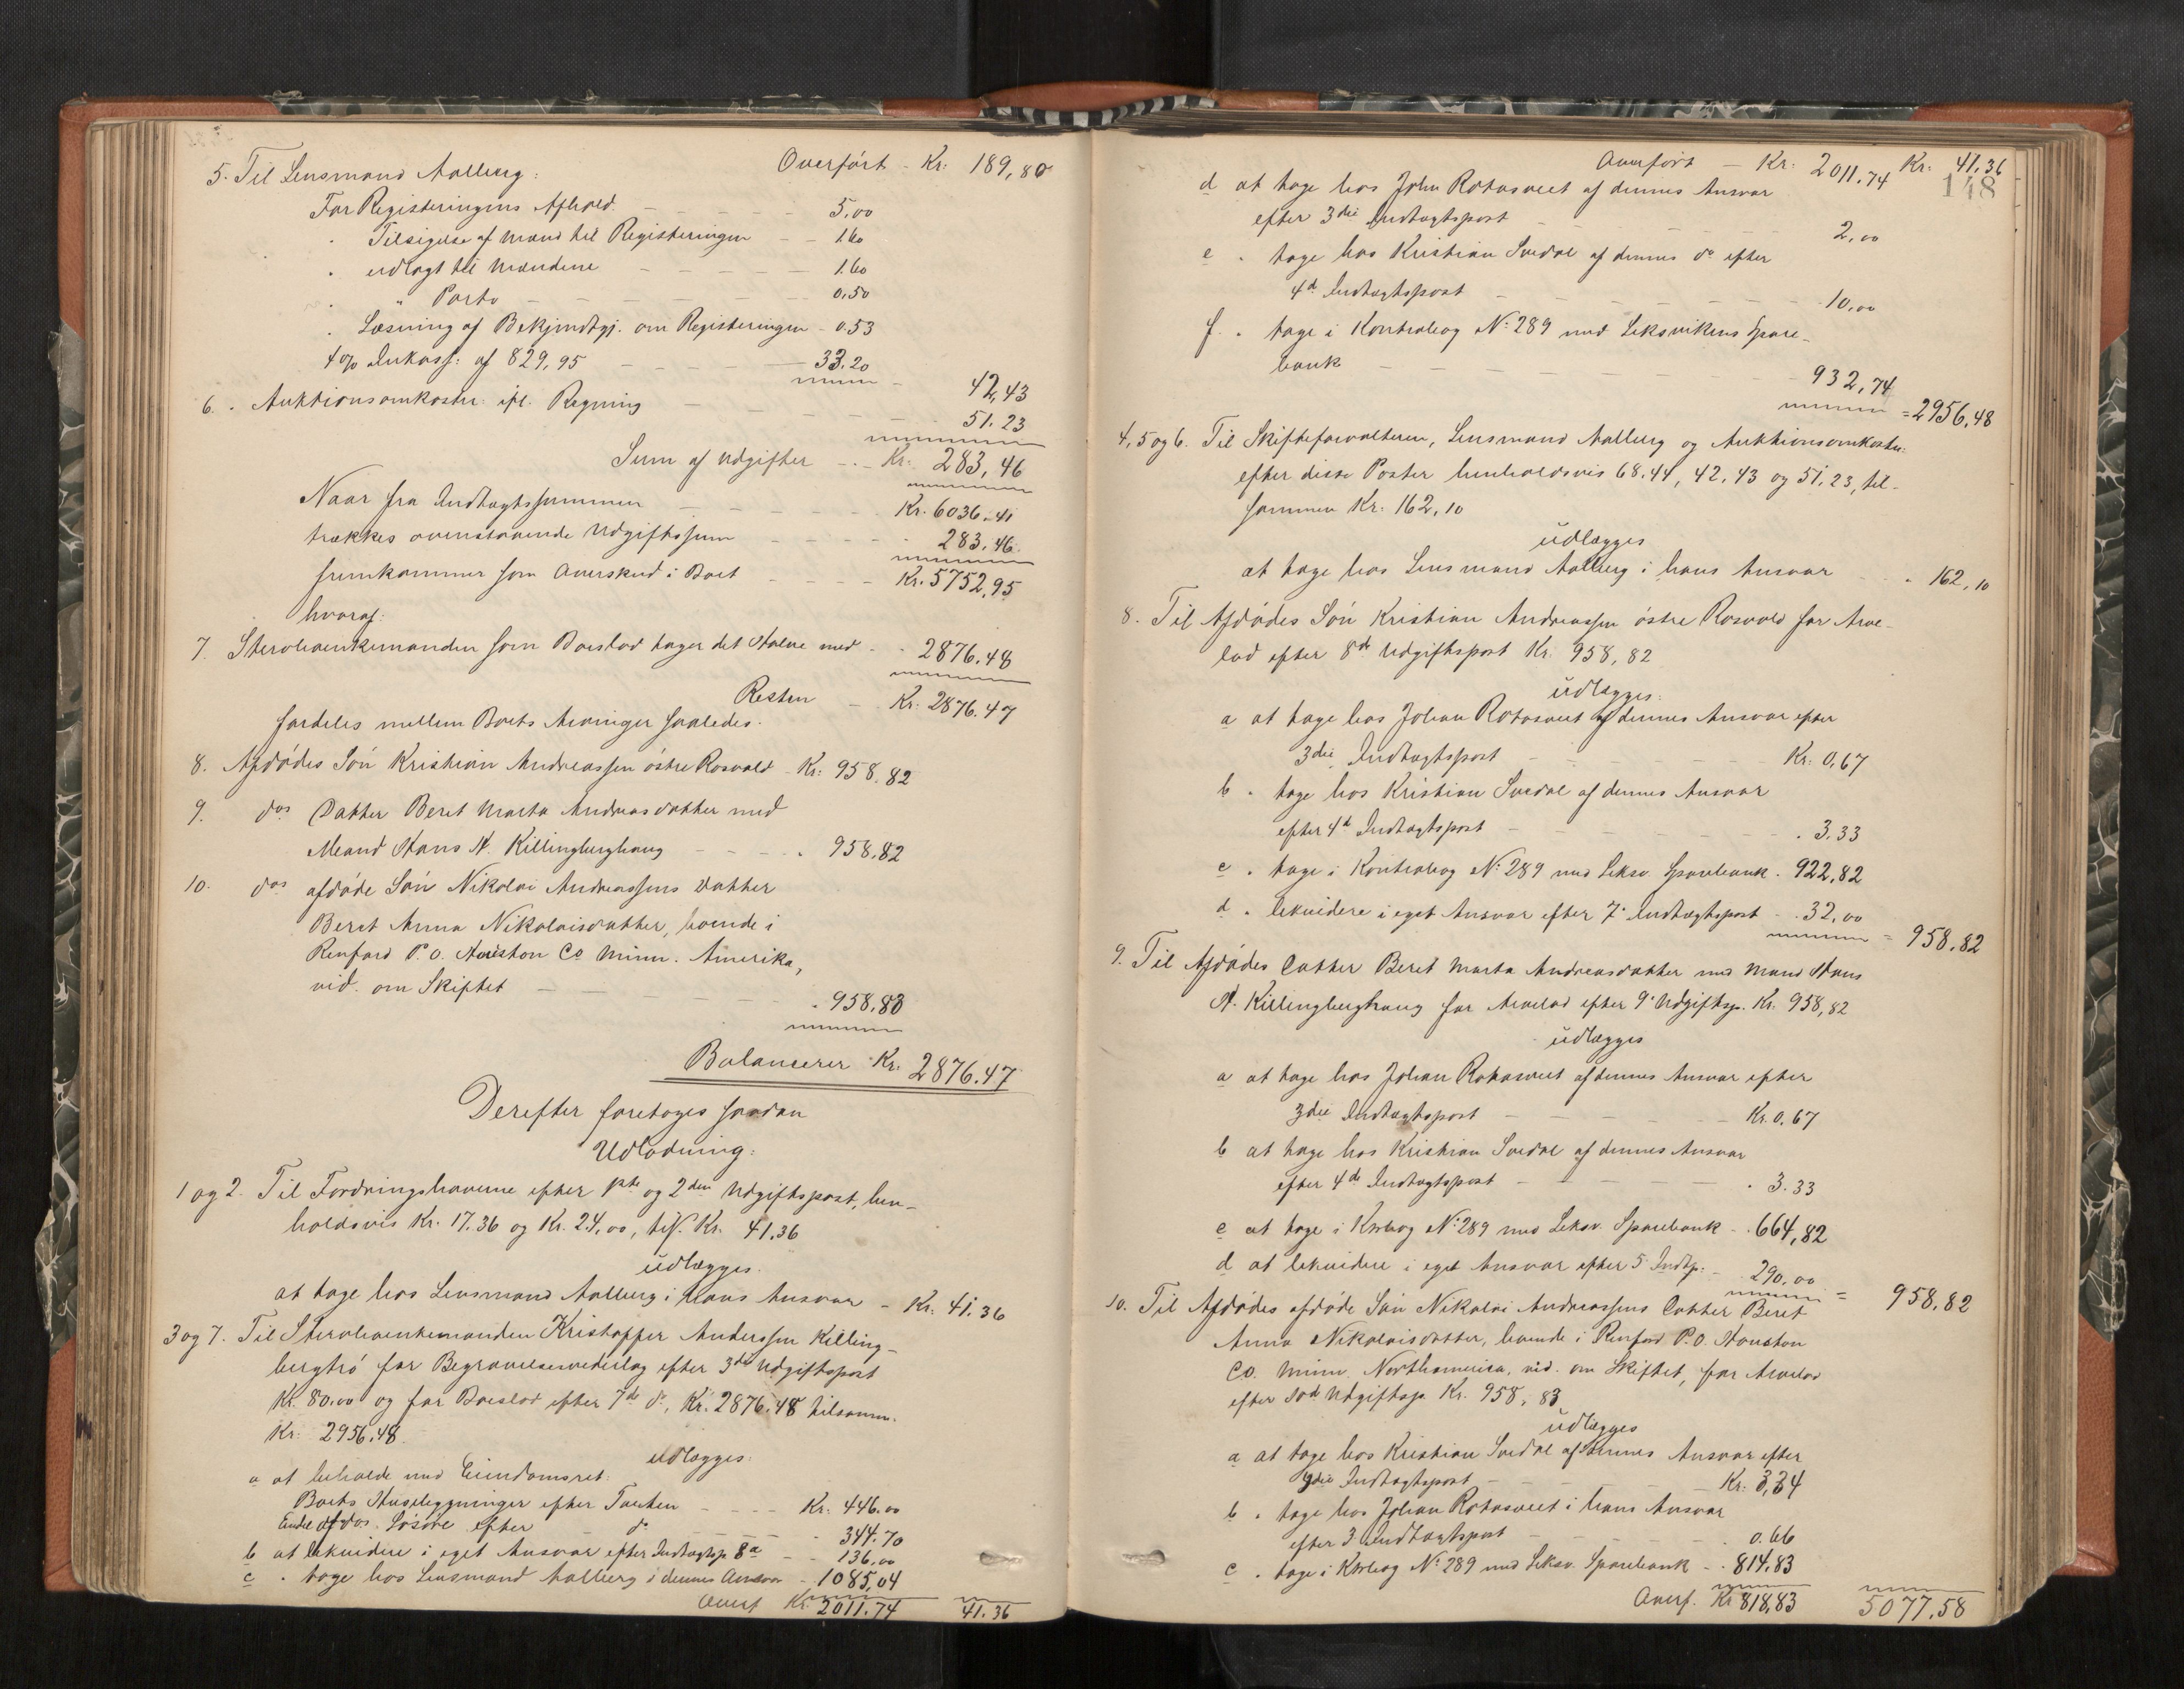 Overført - Kr: 189,80
5. Til Lensmand Aalberg:
For Registeringens Afhold - - - 5,00
" Tilsigelse af Mænd til Registeringen - - 1.60
" udlagt til Mændene - - - 1.60
" " Porto - - - 0,50
" Læsning af Bekjendtgj. om Registeringen - 0.53
4 % Inkass: af 829,95 - - - 33.20
42,43
6. " Auktionsomkostn: ifl. Regning - - - 51.23
Sum af Udgifter - - Kr. 283,46
Naar fra Indtægtssummen - - - Kr. 6036.41
trækkes ovenstaaende Udgiftssum - - - 283,46.
fremkommer som Overskud i Boet - - - Kr. 5752,95
hvoraf:
7. Stervboenkemanden som Boeslod tager det Halve med - - 2876.48
Resten - Kr. 2876.47
fordeles mellem Boets Arvinger saaledes.
8. Afdødes Søn Kristian Andreassen østre Rosvold - Kr: 958.82
9. dos Datter Beret Marta Andreasdatter med
Mand Hans N. Killingberghaug - - - " 958.82
10. dos afdøde Søn Nikolai Andreassens Datter
Beret Anna Nikolaisdatter, boende i
Renford P.O. Houston Co Minn. Amerika,
vid. om Skiftet - - - " 958,83
Balancerer Kr. 2876.47
Derefter foretoges saadan
Udlodning:
1 og 2. Til Fordringshaverne efter 1ste og 2den Udgiftspost, hen-
holdsvis Kr. 17.36 og Kr. 24,00, tils. Kr. 41.36
udlægges.
at tage hos Lensmand Aalberg i hans Ansvar - Kr. 41.36
3 og 7. Til Stervboenkemanden Kristoffer Anderssen Killing-
bergtrø for Begravelsesvederlag efter 3die Udgiftspost
Kr. 80.00 og for Boeslod efter 7de do, Kr. 2876.48 tilsamm.
Kr. 2956.48
udlægges:
a at beholde med Eiendomsret:
Boets Huseligninger efter Taxten - - - Kr. 446.00
Endel af dos. Løsøre efter do - - - 344.70
b at likvidere i eget Ansvar efter Indtægtsp. 8 a - - 136.00
c " tage hos Lensmand Aalberg i dennes Ansvar - 1085,04
Overf. Kr. 2011.74 41.36
Overført - Kr: 2011.74 Kr: 41.36
148
d at tage hos Johan Rotasveet af dennes Ansvar
efter 3die Indtægtspost - - - 2,00
e " tage hos Kristian Svedal af dennes do efter
4de Indtægtspost - - - 10,00
f. " tage i Kontrabog No: 289 med Leksvikens Spare-
bank - - - 932,74
= 2956,48
4, 5 og 6. Til Skifteforvalteren, Lensmand Aalberg og Auktionsomkostn:
efter disse Poster henholdsvis 68.44, 42,43 og 51,23, til-
sammen Kr. 162,10
udlægges
at tage hos Lensmand Aalberg i hans Ansvar " 162,10
8. Til Afdødes Søn Kristian Andreassen østre Rosvold for Arve-
lod efter 8de Udgiftspost Kr. 958,82
udlægges:
a at tage hos Johan Rotasveet af dennes Ansvar efter
3die Indtægtspost - - - Kr. 0,67
b " tage hos Kristian Svedal af dennes Ansvar
efter 4de Indtægtspost - - - " 3.33
c " tage i Kontrabog No: 289 med Leksv. Sparebank " 922,82
d " likvidere i eget Ansvar efter 7. Indtægtspost - " 32,00
= 958.82
9. Til Afdødes Datter Beret Marta Andreasdatter med Mand Hans
N. Killingberghaug for Arvelod efter 9. Udgiftsp. Kr. 958,82
udlægges
a at tage hos Johan Rotasveet af dennes Ansvar efter
3die Indtægtspost - - - Kr. 0,67
b at tage hos Kristian Svedal af dennes Ansvar
efter 4de Indtægtspost - - - " 3.33
c at tage i Ktrbog No: 289 med Leksv. Sparebank - " 664,82
d at likvidere i eget Ansvar efter 5 Indtp: - " 290,00
= 958,82
10. Til Afdødes afdøde Søn Nikolai Andreassens Datter Beret
Anna Nikolaisdatter, boende i Renford P.O. Houston
Co. Minn. Northamerica, vid. om Skiftet, for Arvelod
efter 10de Udgiftsp. Kr. 958,83
udlægges
a at tage hos Kristian Svedal af dennes Ansvar efter
4die Indtægtspost - - - Kr. 3,34
b " tage hos Johan Rotasveet i hans Ansvar
efter 3 Indtægtspost - - - " 0.66
c " tage i Ktrbog No: 289 med Leksv. Sparebank - " 814.83
Overf. Kr 818,83 5077,58